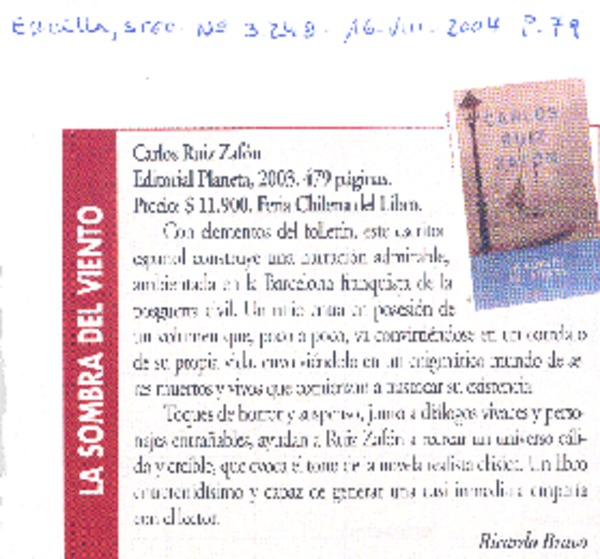 Ercilla, stgo. Nº 3248. 16-VIII-2004 P. 79
CARLOS
RUIZ
ZAFÓN
LA SOMBRA DEL VIENTO
Carlos Ruiz Zafón
Editorial Planeta, 2003. 479 páginas.
Precio: $ 11.900. Feria Chilena del Libro.
Con elementos del folletín, este escritor
español construye una narración admirable,
ambientada en la Barcelona franquista de la
posguerra civil. Un niño entra en posesión de
un volumen que, poco a poco, va convirtiéndose en un correlato
de su propia vida, envolviéndolo en un enigmático mundo de se-
res muertos y vivos que comienzan a su existencia
Toques de horror y suspenso, junto a diálogos vivaces y perso-
najes entrañables, ayudan a Ruiz Zafón a recrear un universo cáli-
do y creíble, que evoca el tono de la novela realista clásica. Un libro
entretenidísimo y capaz de generar una casi inmediata empatía
con el lector.
Ricardo Bravo